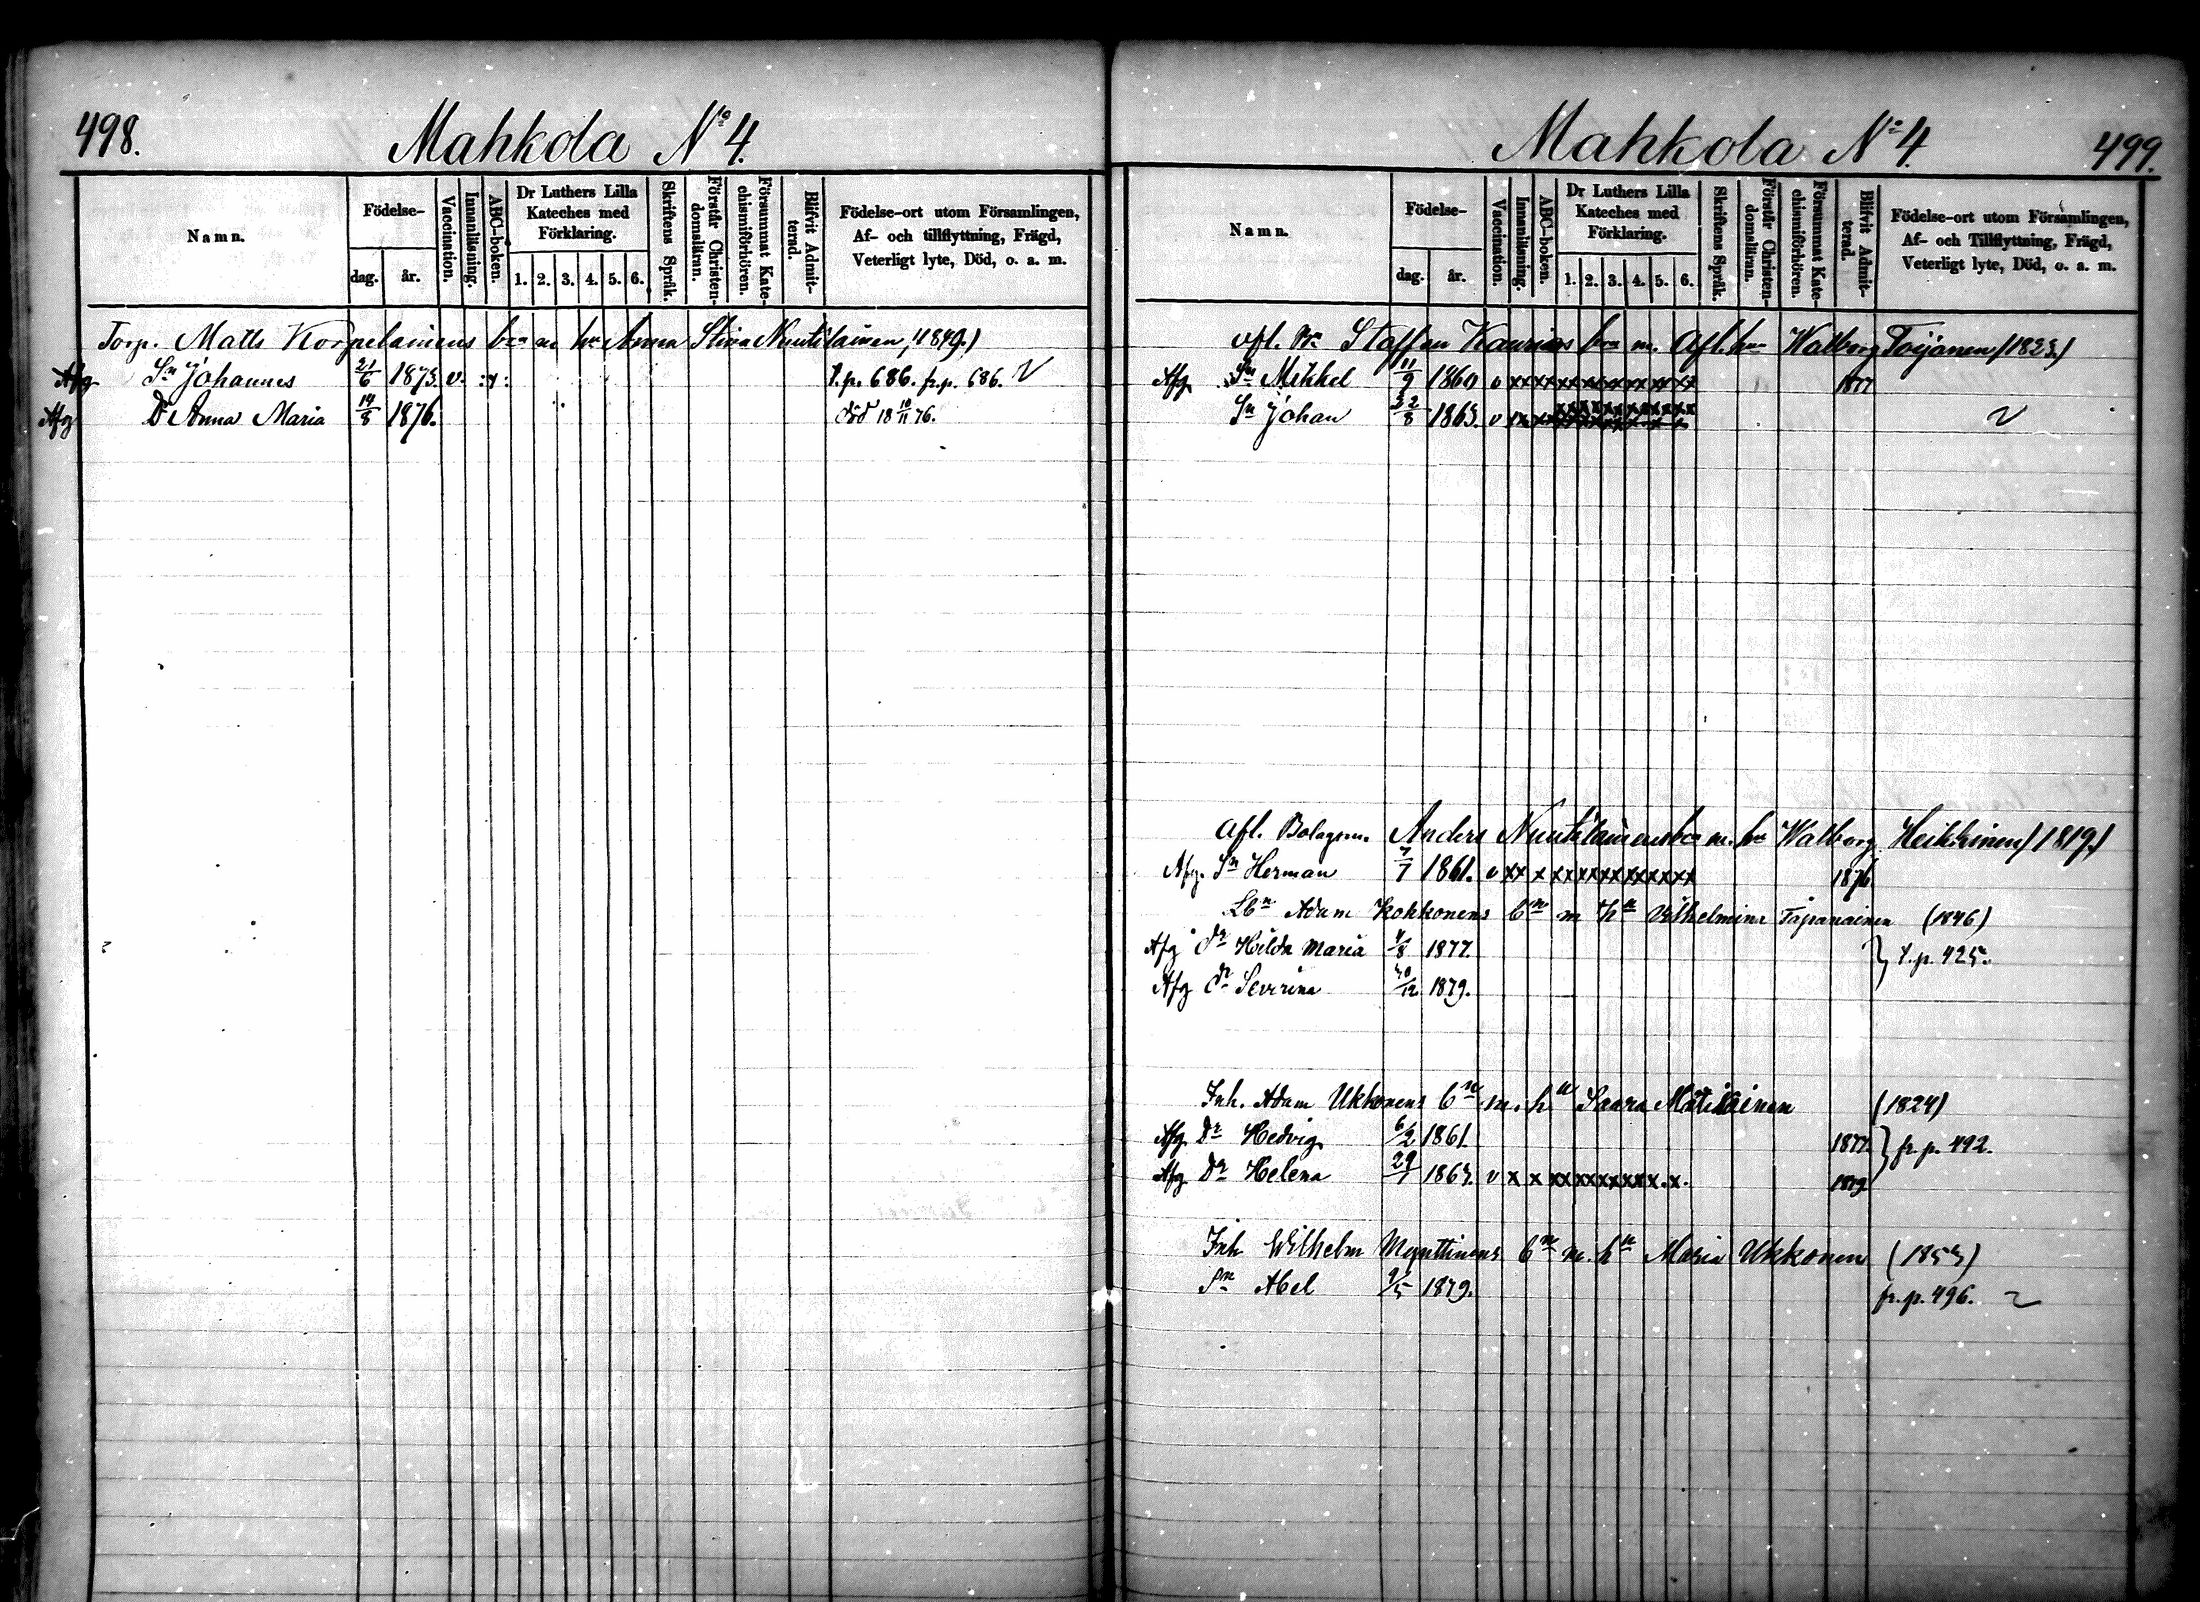 498.
Mahkola No 4.
Namn.
Födelse-
dag.
år.
Vaccination.
Innanläsning.
ABC-boken.
Dr Luthers Lilla
Kateches med
Förklaring.
1. 2. 3. 4. 5. 6.
Skriftens Språk.
Förstår Christen-
domsläran.
Försummat Kate-
chismiförhören.
Blifvit Admit-
terad.
Födelse-ort utom Församlingen,
Af- och tillflyttning, Frägd,
Veterligt lyte, Död, o. a. m.
Torp. Matts Korpelainens bn m hu Anna Stina Nuutilainen, (1849.)
Afg. Sn Johannes 21/6 1873. v. t.p. 686. fr.p. 686.
Afg Dr Anna Maria 14/8 1876. död 18 10/11 76.
Mahkola No 4.
499.
Namn.
Födelse-
dag.
år.
Vaccination.
Innanläsning.
ABC-boken.
Dr Luthers Lilla
Kateches med
Förklaring.
1. 2. 3. 4. 5. 6.
Skriftens Språk.
Förstår Christen-
domsläran.
Försummat Kate-
chismiförhören.
Blifvit Admit-
terad.
Födelse-ort utom Församlingen,
Af- och Tillflyttning, Frägd,
Veterligt lyte, Död, o. a. m.
Afl. Staffan m. Afl. hu Walborg Toijanen (1823.)
Afg. Sn Mikkel 11/9 1860 v xx xx xxxxxxxxxxxx 1877
Sn Johan 22/8 1863. v xx xx
Afl. Bolagsm. Anders Nuutilainens bn m. hu Walborg Heikkinen (1819.)
Afg. Sn Herman 7/7 1861. v xx x xxxxxxxxxxxx 1876
Adam Kokkonens bn m hu Vilhelmina Tapanainen (1846)
Afg dr Hilda Maria 4/8 1877. } t.p. 425.
Afg dr Severina 30/12 1879.
Inh. Adam Ukkonens bn m. hu Saara Matilainen (1824)
Afg. Dr Hedvig 6/2 1861. 1877. } fr. p. 492.
Afg. Dr Helena 29/7 1863. v x x xxxxxxxxx.x. 1879
Inh Wilhelm Mynttinens bn m. hu Maria Ukkonen (1853)
Sn Abel 9/5 1879. fr. p. 496.